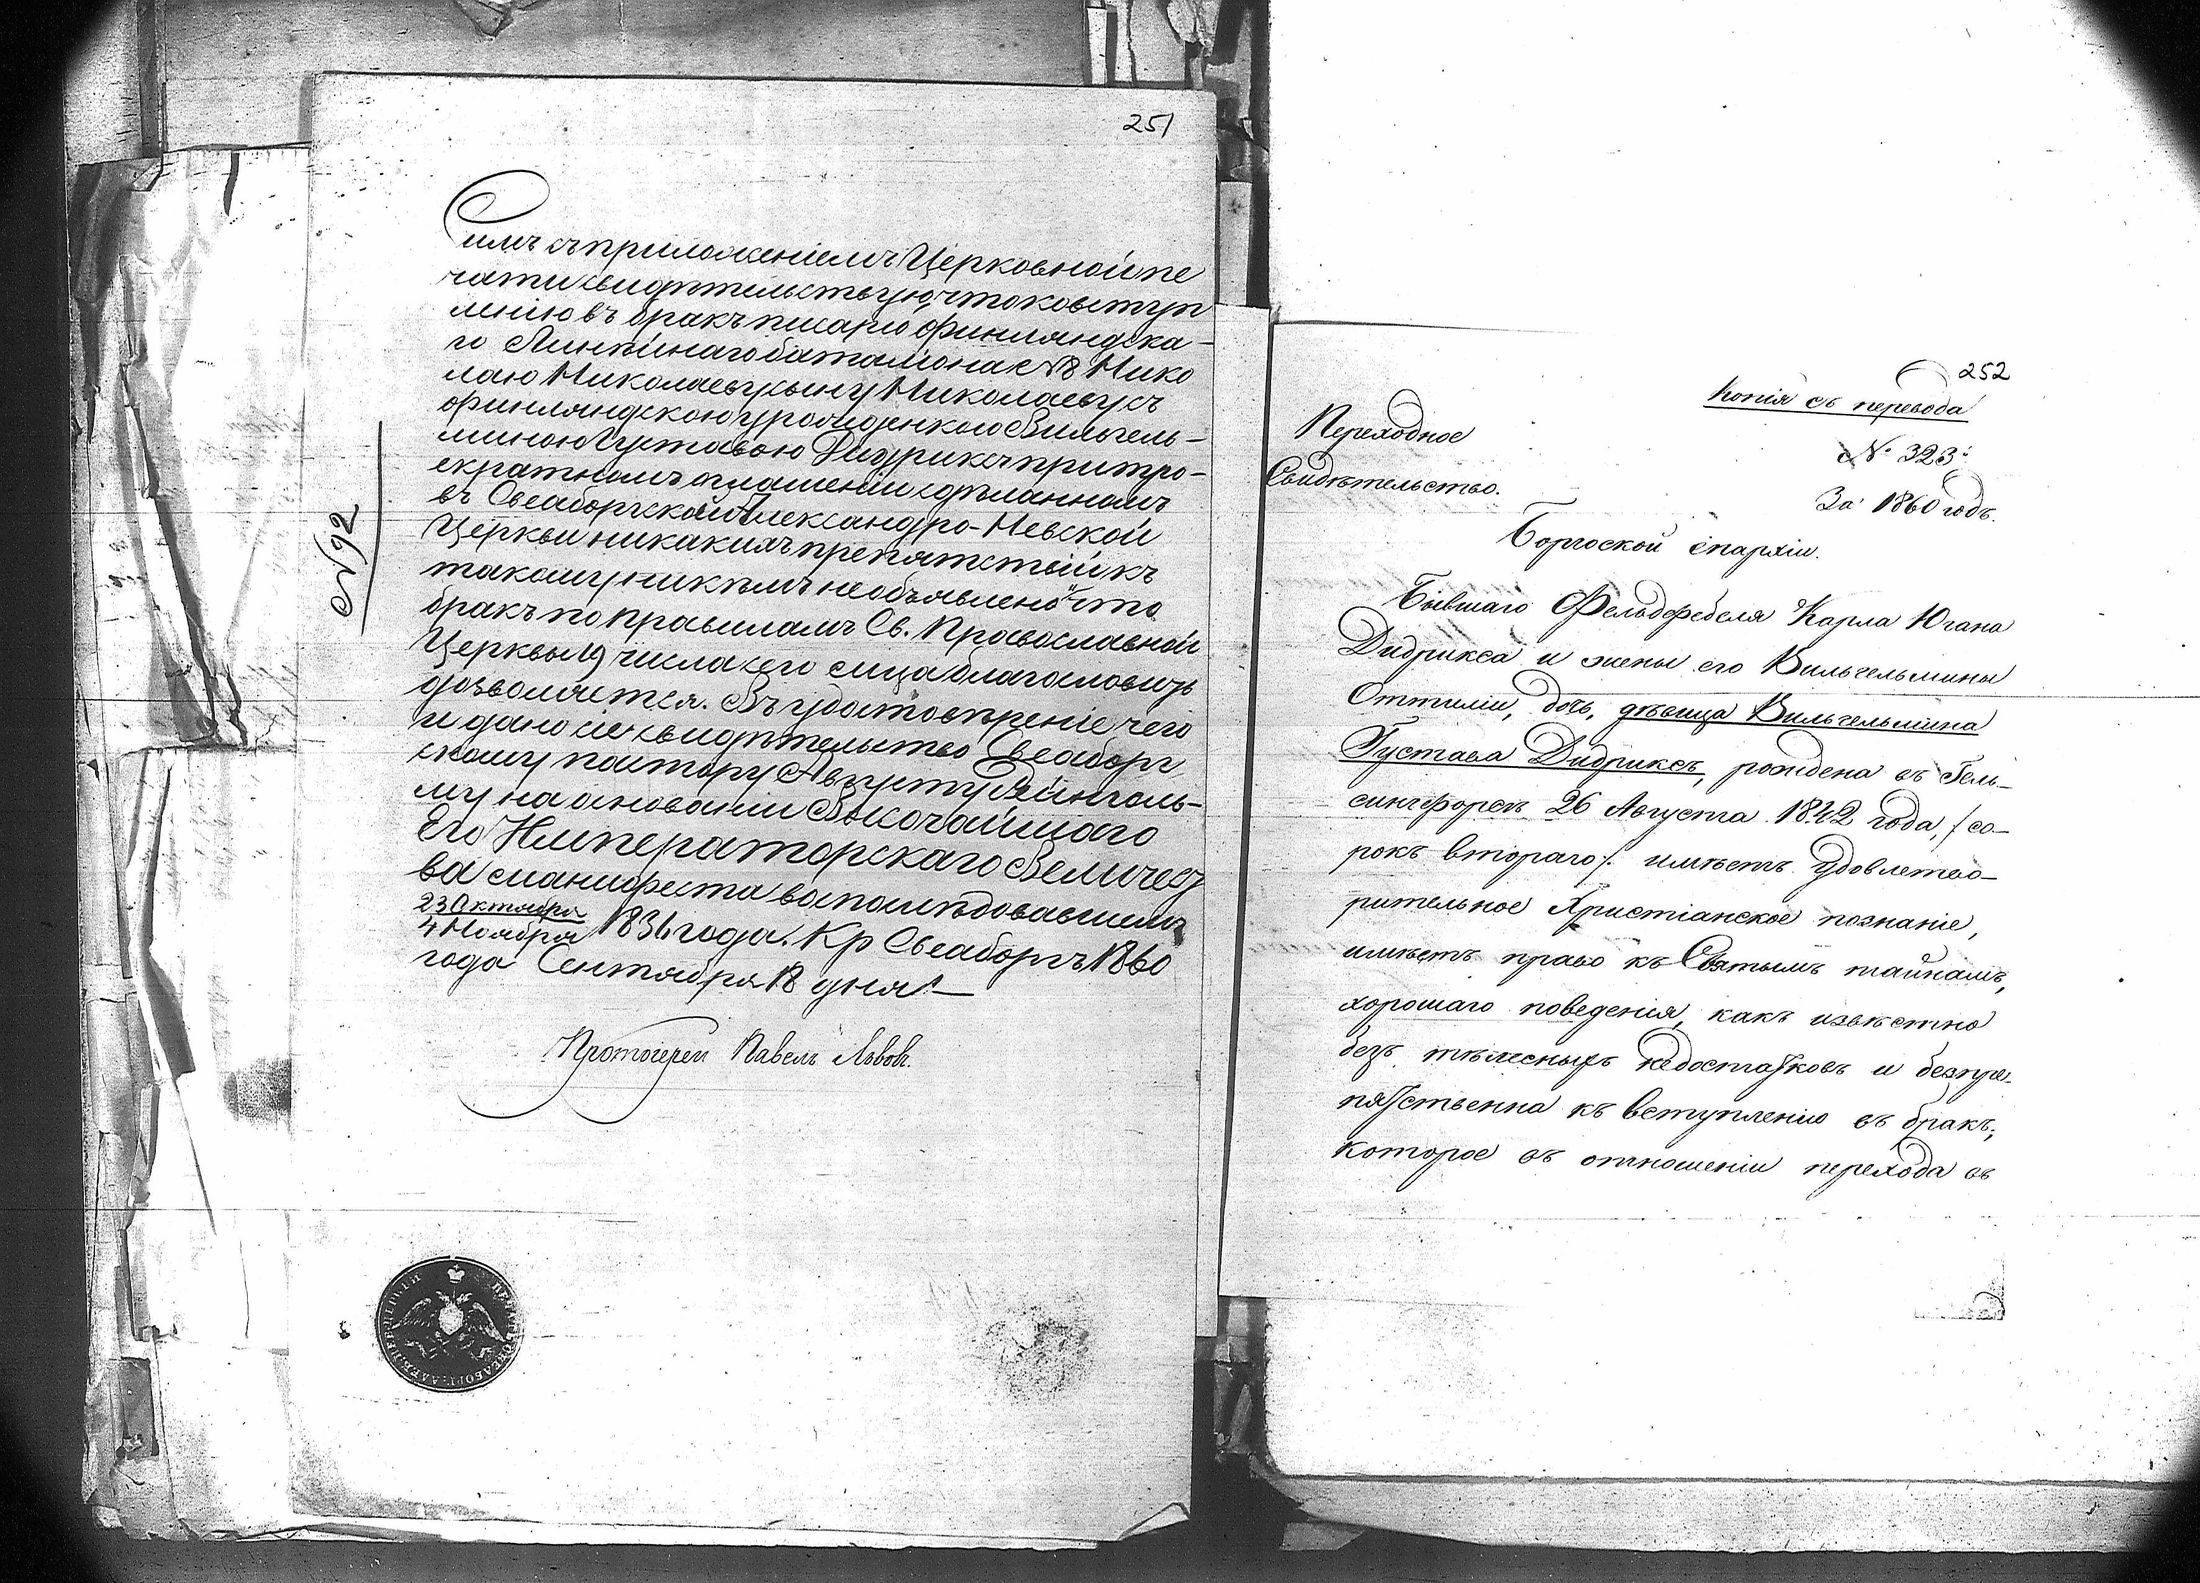 251
Симъ съ приложеніемъ Церковной пе
чати свидѣтельствую, что ко вступ
ленію въ бракъ писарю Финляндска-
го Линѣйнаго баталіона № 8 Нико
лаю Николаеву сыну Николаеву съ
финляндскою урожденкою Вильгель-
миною Густавою Дидриксъ при тро-
екратномъ оглашеніи сдѣланномъ
въ Свеаборгской Александро-Невской
Церкви никакихъ препятствій къ
такому никѣмъ не объявлено и что
бракъ по правиламъ Св. Православной
Церквы 19 числа сего мѣсяца благословить
дозволяется. Въ удостовѣреніе чего
и дано сіе свидѣтельство Свеаборг
скому пастору Августу
му на основаніи Высочайшаго
Его Императорскаго Величест
ва манифеста въ послѣдовавшемъ
23 Октября
4 Ноября 1836 года. Кр Свеаборгъ 1860
года Сентября 18 дня.
Протоіерей Павелъ Львовъ.
№ 92
252
Копія съ перевода
Переходное
№ 323:
Свидѣтельство.
За 1860 годъ.
Боргоской епархіи.
Бывшаго Фельдфебеля Карла Югана
Дидрикса и жены его Вильгельмины
Оттиліи, дочь, дѣвица Вильгельмина
Густава Дидриксъ, рождена въ Гель-
сингфорсѣ 26 Августа 1842 года, /со-
рокъ втораго/. имѣетъ удовлетво-
рительное Христіанское познаніе,
имѣетъ право къ Святымъ тайнамъ,
хорошаго поведенія, какъ извѣстно
безъ тѣлесныхъ недостатковъ и безпре-
пятственна къ вступленію въ бракъ,
которое въ отношеніи перехода въ